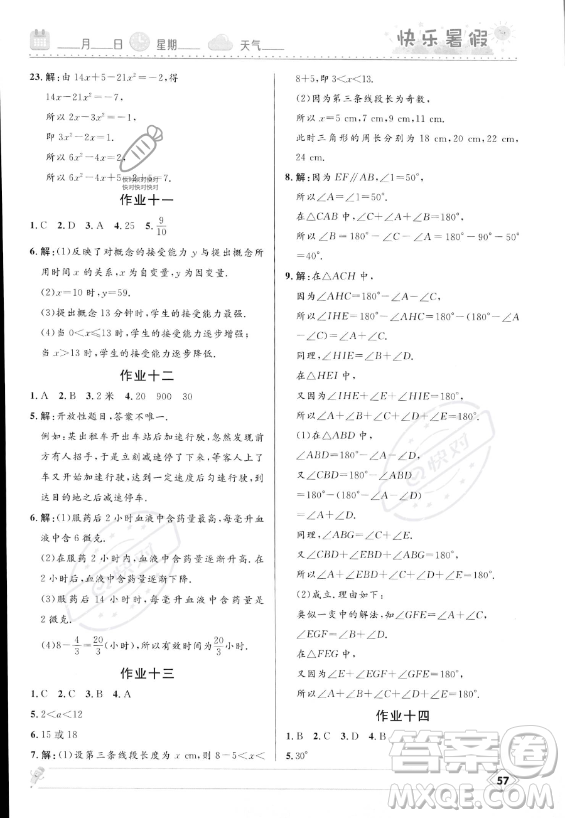 月 日 星期 天气 快乐暑假
23.解:由 14x+5-21x²=-2,得
14x-21x²=-7.
所以 2x-3x²=-1.
即 3x²-2x=1.
所以 6x²-4x=2.
所以 6x²-4x+5=2+5=7.
快对快对快对
快对快对快对
作业十一
1.C 2.D 3.A 4.25 5.9/10
6.解:(1)反映了对概念的接受能力 y 与提出概念所
用时间 x 的关系,x 为自变量,y 为因变量.
(2)x=10 时,y=59.
(3)提出概念 13 分钟时,学生的接受能力最强.
(4)当 0<x≤13 时,学生的接受能力逐步增强;当
x>13 时,学生的接受能力逐步降低.
作业十二
1.A 2.B 3.2米 4.20 900 30
5.解:开放性题目,答案不唯一.
例如:某出租车开出车站后加速行驶,突然发现前
方有人招手,于是立刻减速停了下来,等人上了
车又开始加速行驶,达到一定速度后匀速行驶,最
后减速停车.
6.解:(1)服药后 2 小时血液中含药量最高,每毫升血
液中含 6 微克.
(2)在服药 2 小时内,血液中含药量逐渐升高.在
2 小时后,血液中含药量逐渐下降.
(3)服药后 8 小时,每毫升血液中含药量是
2 微克.
(4)8-4/3=20/3(小时),所以有效时间为 20/3 小时.
作业十三
1.C 2.C 3.B 4.A
5.2<a<12
6.15 或 18
7.解:(1)设第三条线段长度为 x cm,则 8-5<x<
8+5,即 3<x<13.
(2)因为第三条线段长为奇数,
所以 x=5 cm,7 cm,9 cm,11 cm.
此时三角形的周长分别为 18 cm,20 cm,22 cm,
24 cm.
8.解:因为 EF∥AB,∠1=50°,
所以∠A=∠1=50°.
因为∠A+∠B+∠C+∠D+∠A=180°,
∠B+∠C+∠D=180°,
所以∠B=180°-∠A-∠C=180°-50°-90°
=40°.
9.解:在△ACH 中,
因为∠AHC=180°-∠A-∠C,
所以∠IHE=180°-∠AHC=180°-(180°-
∠A-∠C)=∠A+∠C.
即∠HIE=∠A+∠C.
同理,∠HEI=∠B+∠D.
在△HEI 中,
又因为∠IHE+∠HIE+∠E=180°,
所以∠A+∠B+∠C+∠D+∠E=180°.
(1)在△ABD 中,
因为∠ABD=180°-∠A-∠D,
所以∠DBC=180°-∠ABD=180°-
(180°-∠A-∠D)=∠A+∠D,
即∠DBE=∠A+∠D.
同理,∠EBD=∠A+∠C.
在△EBD 中,
又因为∠EBD+∠DBE+∠E=180°,
所以∠A+∠EBD+∠C+∠D+∠E=180°.
(2)成立.理由如下:
类似一变中的解法,∠FGE=∠A+∠C,
∠EGF=∠B+∠D.
在△FEG 中,
因为∠E+∠EFG+∠EGF=180°,
所以∠A+∠EBD+∠C+∠D+∠E=180°.
作业十四
1.B 2.C 3.D 4.B
5.30°
57